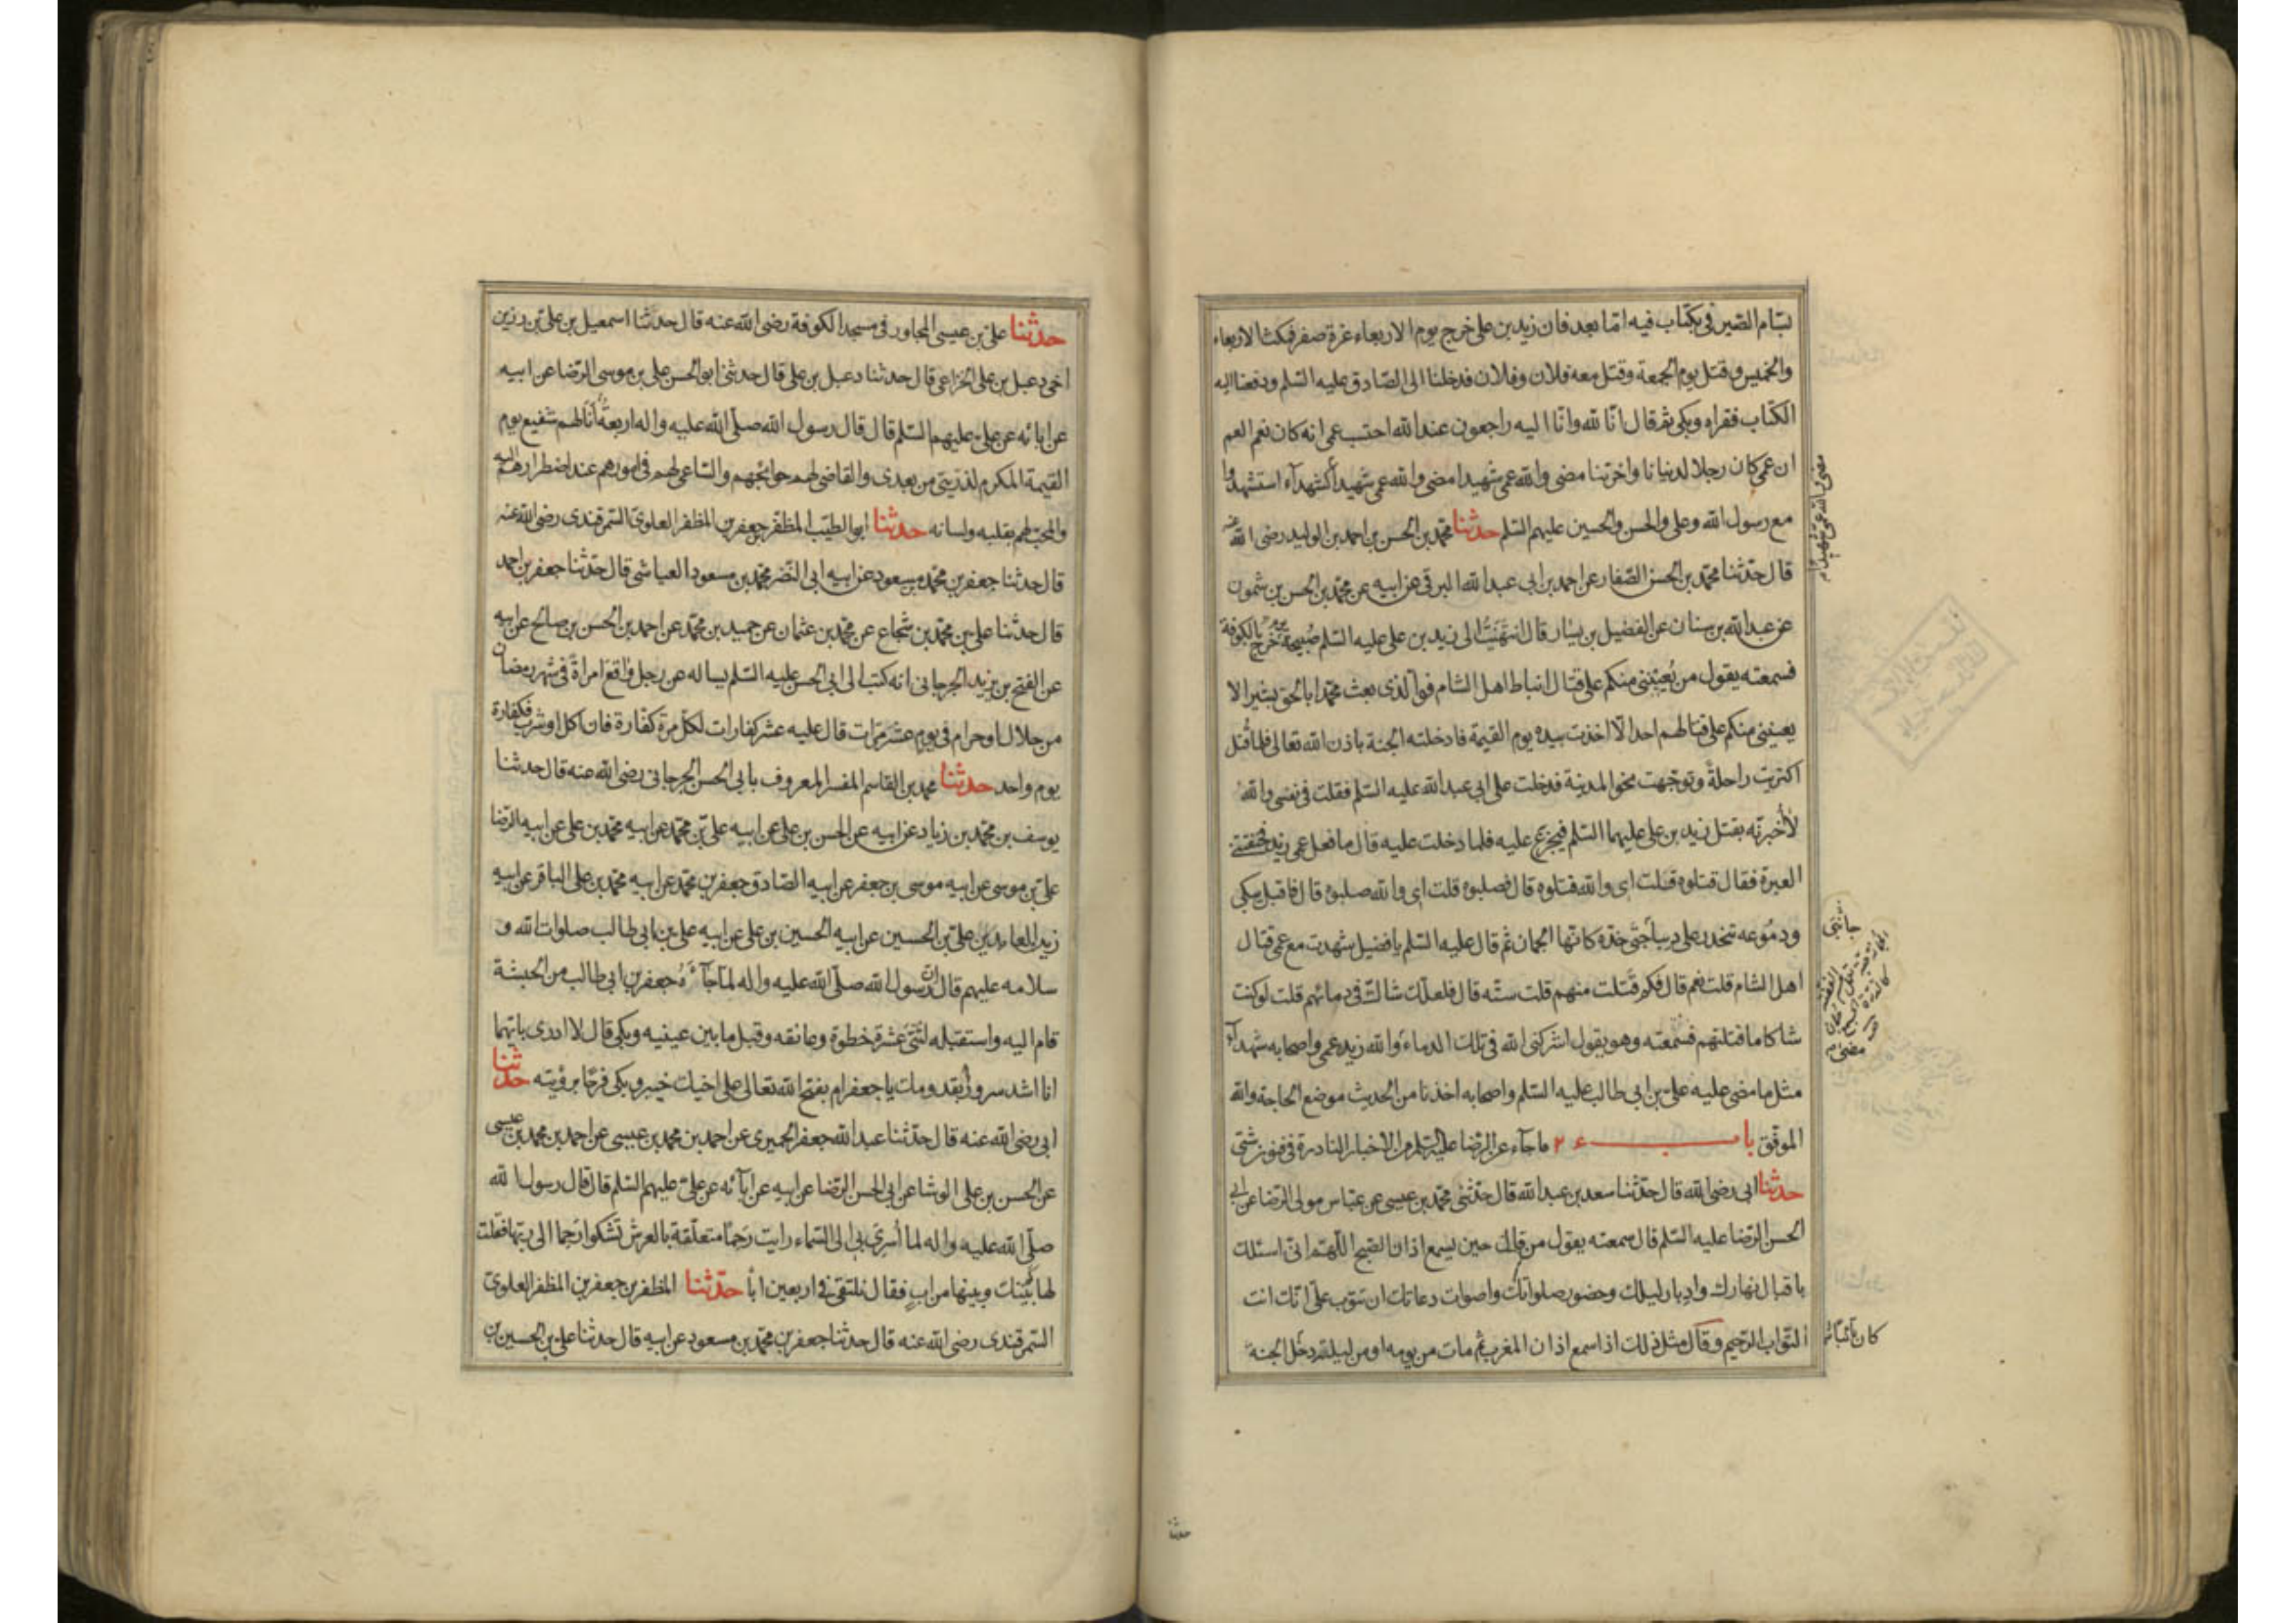 بسّام الصّيرفي بكتاب فيه امّا بعد فان زيد بن علي خرج يوم الاربعاء غرة صفر فمكث الاربعاء
والخميس وقتل يوم الجمعة وقتل معه فلان وفلان فدخلنا الى الصّادق عليه السّلم ودفعنا اليه
الكتاب فقراه وبكى ثمّ قال انّا لله وانّا اليه راجعون عند الله احتسب عمي انه كان نعم العم
ان عمي كان رجلا لدنيانا واخرتنا مضى والله عمي شهيدا مضى والله عمي شهيدا كشهدآء استشهدوا
مع رسول الله وعلي والحسن والحسين عليهم السّلم حدثنا محمّد بن الحسن بن احمد بن الوليد رضى الله عنه
قال حدّثنا محمّد بن الحسن الصّفار عن احمد بن ابى عبد الله البرقي عن ابيه عن محمّد بن الحسن بن شمون
عن عبد الله بن سنان عن الفضيل بن يسار قال انتهيت الى زيد بن علي عليه السّلم صبيحة خرج بالكوفة
فسمعته يقول من يعينني منكم على قتال انباط اهل الشام فوالذي بعث محمّدا بالحق بشيرا لا
يعينني منكم على قتالهم احد الّا اخذت بيده يوم القيمة فادخلته الجنة باذن الله تعالى فلما قتل
اكتريت راحلةً وتوجّهت نحو المدينة فدخلت على ابى عبد الله عليه السّلم فقلت فى نفسى والله
لأخبرنّه بقتل زيد بن على عليهما السّلم فيجزع عليه فلما دخلت عليه قال ما فعل عمى زيد فخنقتنى
العبرة فقال قتلوه قلت اى والله قتلوه قال فصلبوه قلت اى والله صلبوه قال فاقبل يبكى
ودموعه تنحدر على ديباجتى خدّه كانّها الجمان ثم قال عليه السّلم يا فضيل شهدت مع عمى قتال
اهل الشام قلت نعم قال فكم قتلت منهم قلت ستّه قال فلعلّك شاكّ فى دمائهم قلت لو كنت
شاكا ما قتلتهم فسمعته وهو يقول اشركنى الله فى تلك الدماء والله زيد عمى واصحابه شهدآء
مثل ما مضى عليه على بن ابى طالب عليه السّلم واصحابه اخذنا من الحديث موضع الحاجة والله
الموفّق باب ما جآء عن الرّضا عليه السّلم من الاخبار النادرة فى فنون شتّى
حدثنا ابى رضى الله قال حدّثنا سعد بن عبد الله قال حدّثنى محمّد بن عيسى عن عبّاس مولى الرّضا عن ابى
الحسن الرّضا عليه السّلم قال سمعته يقول من قال حين يسمع اذان الصّبح اللّهمّ انّى اسئلك
باقبال نهارك وادبار ليلك وحضور صلواتك واصوات دعاتك ان تتوب علىّ انّك انت
التّواب الرّحيم وقال مثل ذلك اذا سمع اذان المغرب ثم مات من يومه او من ليلته دخل الجنة
مضى والله عمى شهيدا
كان تائبا
حدثنا
حدثنا علىّ بن عيسى المجاور فى مسجد الكوفة رضى الله عنه قال حدثنا اسمعيل بن علىّ بن رزين
اخى دعبل بن على الخزاعى قال حدثنا دعبل بن على قال حدثنى ابو الحسن على بن موسى الرّضا عن ابيه
عن ابائه عن علىّ عليهم السّلم قال قال رسول الله صلّى الله عليه واله اربعة أنا لهم شفيع يوم
القيمة المكرم لذرّيتى من بعدى والقاضى لهم حوائجهم والسّاعى لهم فى امورهم عند اضطرارهم اليه
والمحبّ لهم بقلبه ولسانه حدثنا ابو الطيّب المظفّر جعفر بن المظفر العلوىّ السّمرقندى رضى الله عنه
قال حدثنا جعفر بن محمّد بن مسعود عن ابيه ابى النّضر محمّد بن مسعود العياشى قال حدّثنا جعفر بن احمد
قال حدثنا على بن محمّد بن شجاع عن محمّد بن عثمان عن حميد بن محمّد عن احمد بن الحسن بن صالح عن ابيه
عن الفتح بن يزيد الجرجانى انه كتب الى ابى الحسن عليه السّلم يساله عن رجل واقع امراةً فى شهر رمضان
من حلال او حرام فى يوم عشر مرّات قال عليه عشر كفارات لكلّ مرة كفّارة فان اكل او شرب فكفارة
يوم واحد حدثنا محمد بن القاسم المفسر المعروف بابى الحسن الجرجانى رضى الله عنه قال حدثنا
يوسف بن محمّد بن زياد عن ابيه عن الحسن بن على عن ابيه علىّ بن محمّد عن ابيه محمّد بن على عن ابيه الرّضا
علىّ بن موسى عن ابيه موسى بن جعفر عن ابيه الصّادق جعفر بن محمّد عن ابيه محمّد بن على الباقر عن ابيه
زين العابدين علىّ بن الحسين عن ابيه الحسين بن على عن ابيه على بن ابى طالب صلوات الله و
سلامه عليهم قال ان رسول الله صلّى الله عليه واله لمّا جآءه جعفر بن ابى طالب من الحبشة
قام اليه واستقبله اثنتى عشرة خطوة وعانقه وقبل ما بين عينيه وبكى قال لا ادرى بايّهما
انا اشد سرورا بقدومك يا جعفر ام بفتح الله تعالى على اخيك خيبر وبكى فرحًا برؤيته حدثنا
ابى رضى الله عنه قال حدّثنا عبد الله جعفر الحميرى عن احمد بن محمد بن عيسى عن احمد بن محمد بن عيسى
عن الحسن بن على الوشا عن ابى الحسن الرّضا عن ابيه عن آبآئه عن علىّ عليهم السّلم قال قال رسول الله
صلّى الله عليه واله لما أسرى بى الى السّماء رايت رحمًا متعلّقة بالعرش تشكو ارحما الى ربّها فقلت
لها كم بينك وبينها من اب فقال نلتقى فى اربعين ابًا حدّثنا المظفر بن جعفر بن المظفر العلوىّ
السّمرقندى رضى الله عنه قال حدّثنا جعفر بن محمّد بن مسعود عن ابيه قال حدثنا على بن الحسين بن